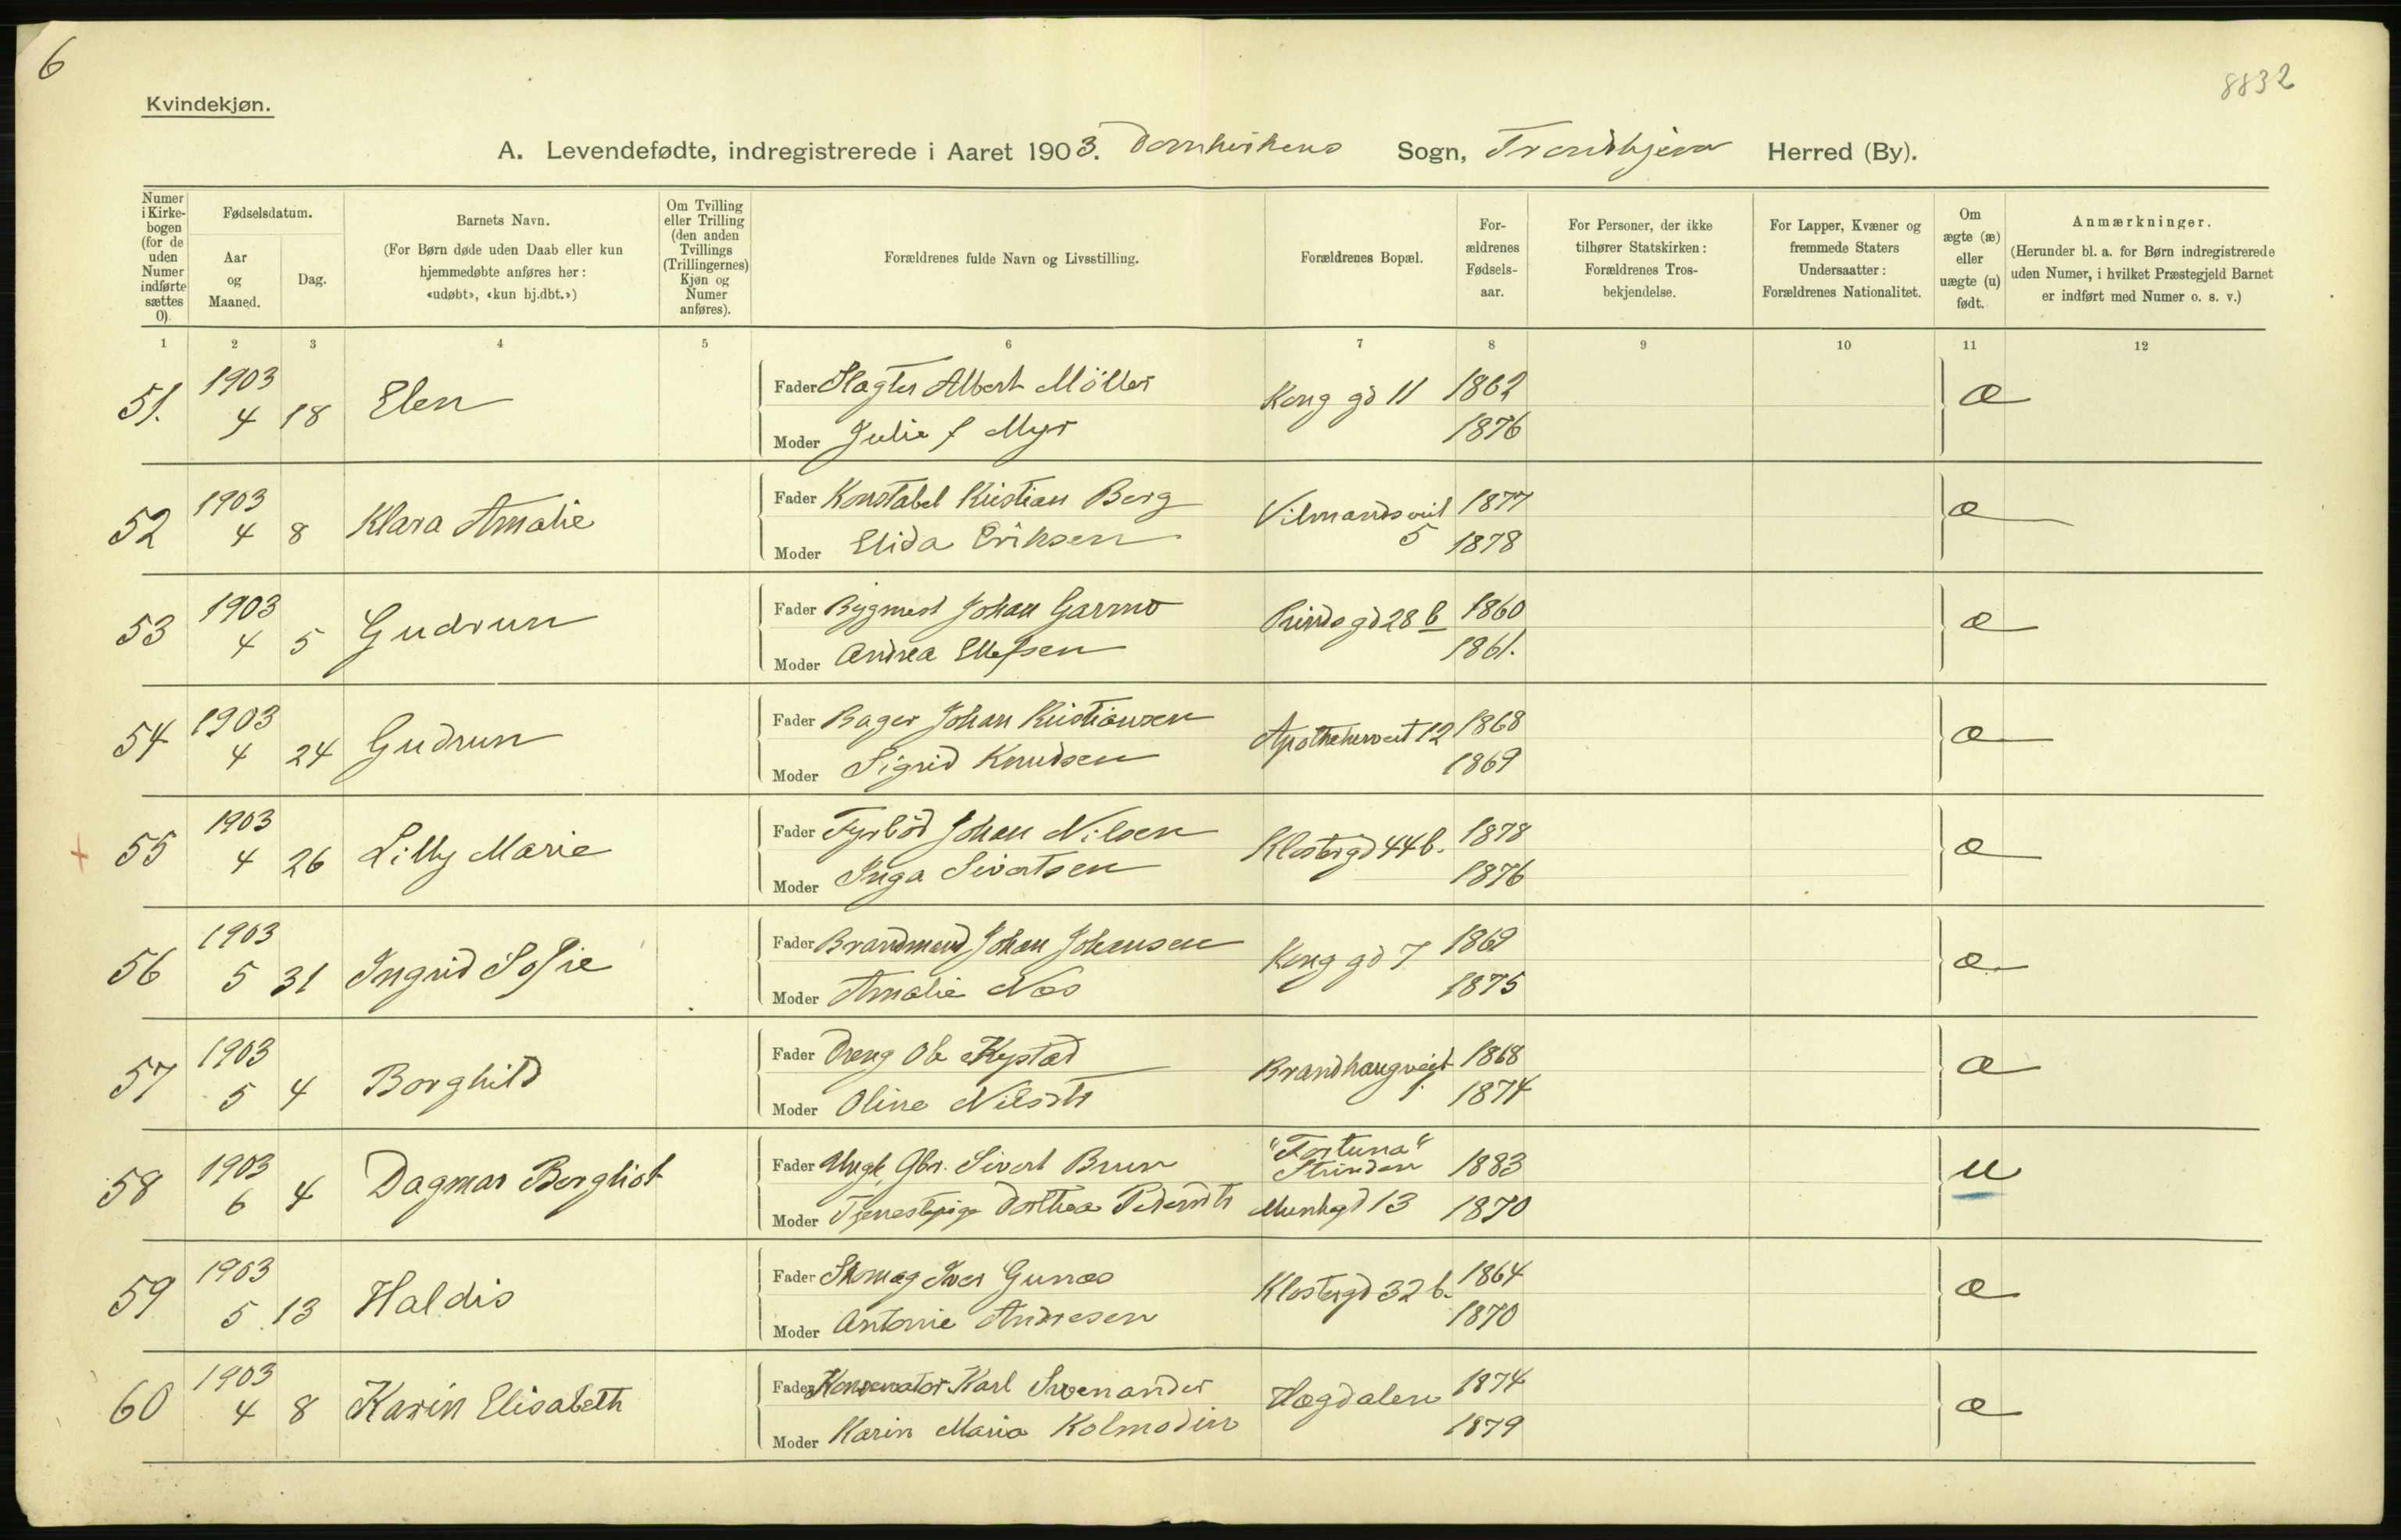 6
8832
Kvindekjøn.
A. Levendefødte, indregistrerede i Aaret 1903. Domkirkens Sogn, Trondhjem Herred (By).
Numer i Kirkebogen (for de uden Numer indførte sættes 0).
Fødselsdatum.
Aar og Maaned.
Dag.
Barnets Navn.
(For Børn døde uden Daab eller kun hjemmedøbte anføres her: «udøbt», «kun hj.dbt.»)
Om Tvilling eller Trilling (den anden Tvillings (Trillingernes) Kjøn og Numer anføres).
Forældrenes fulde Navn og Livsstilling.
Forældrenes Bopæl.
Forældrenes Fødselsaar.
For Personer, der ikke tilhører Statskirken: Forældrenes Trosbekjendelse.
For Lapper, Kvæner og fremmede Staters Undersaatter: Forældrenes Nationalitet.
Om ægte (æ) eller uægte (u) født.
Anmærkninger.
(Herunder bl. a. for Børn indregistrerede uden Numer, i hvilket Præstegjeld Barnet er indført med Numer o. s. v.)
1 2 3 4 5 6 7 8 9 10 11 12
51. 1903 4 18 Elen Fader Slagter Albert Möller Kong gd 11 1862 æ
Moder Julie f Myr 1876
52 1903 4 8 Klara Amalie Fader Konstabel Kristian Berg Vilmandsveit 5 1877 æ
Moder Elida Eriksen 1878
53 1903 4 5 Gudrun Fader Bygmest Johan Garmo Prinds gd 28 b 1860 æ
Moder Andrea Ellefsen 1861.
54 1903 4 24 Gudrun Fader Bager Johan Kristiansen Apothekerveit 12 1868 æ
Moder Sigrid Knudsen 1869
55 1903 4 26 Lilly Marie Fader Fyrböd Johan Nilsen Klostergd 44 b. 1878 æ
Moder Inga Sivertsen 1876
56 1903 5 31 Ingrid Sofie Fader Brandmand Johan Johansen Kong gd 7 1869 æ
Moder Amalie Næs 1875
57 1903 5 4 Borghild Fader Dreng Ole Kystad Brandhaugveit 1. 1868 æ
Moder Oline Nilsdtr 1874
58 1903 6 4 Dagmar Bergliot Fader Ungk. Gbr. Sivert Brun "Fortuna" Strinden 1883 u
Moder Tjenestepige Dorthea Pedersdtr Munkgd 13 1870
59 1903 5 13 Haldis Fader Skomag Iver Gunæs Klostergd 32 b. 1864 æ
Moder Antonie Andresen 1870
60 1903 4 8 Karin Elisabeth Fader Konservator Karl Svenander Hægdalen 1874 æ
Moder Karin Maria Kolmodin 1879